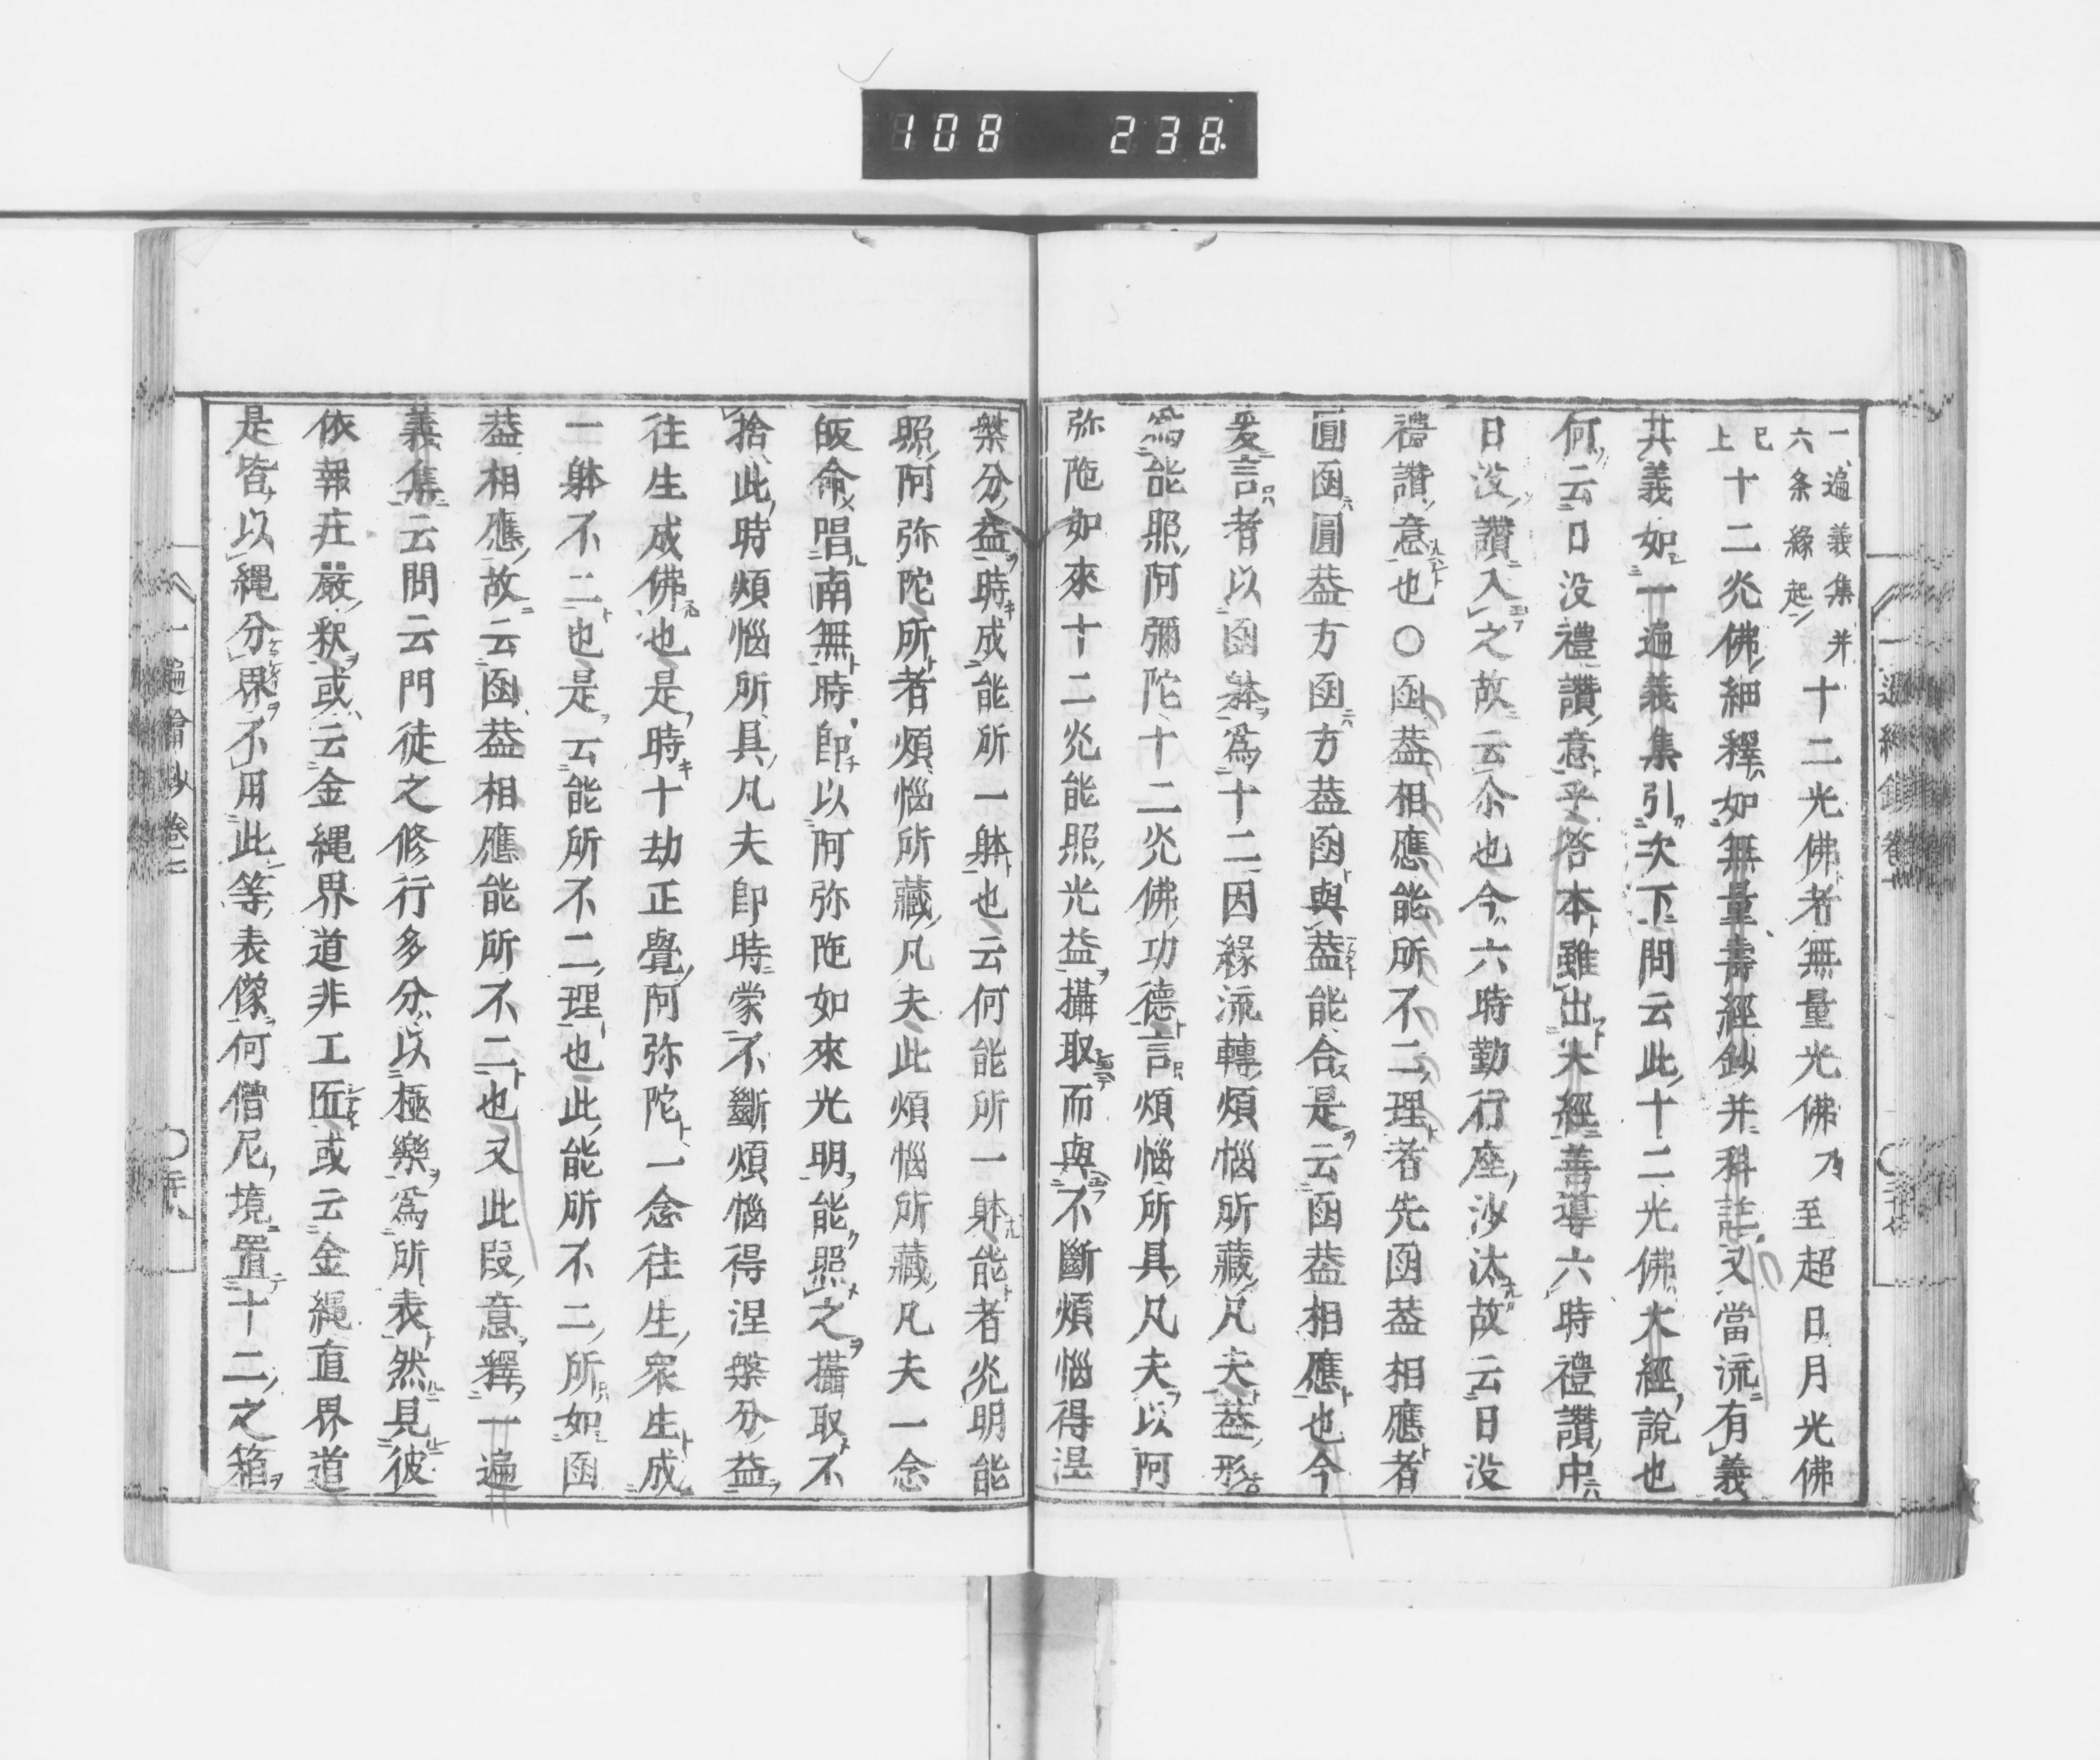 108 238
一遍義集并
六条縁起
十二光佛者無量光佛乃至超日月光佛
已上
十二炎佛細釋如無量壽經鈔并科註又當流有義
其義如一遍義集引次下問云此十二光佛大經說也
何云日没禮讚意乎答本雖出大經善導六時禮讚中
日没讚入之故云尒也今六時勤行座沙汰故云日没
禮讚意也〇函葢相應能所不二理者先函葢相應者
圓函圓葢方函方葢函與葢能合是云函葢相應也今
爰言者以函躰爲十二因縁流轉煩惱所藏凡夫葢形
爲能照阿彌陀十二炎佛功德言煩惱所具凡夫以阿
弥陁如來十二炎能照光益攝取而與不斷煩惱得涅
槃分益時成能所一躰也云何能所一躰能者炎明能
照阿弥陀所者煩惱所藏凡夫此煩惱所藏凡夫一念
皈命唱南無時即以阿弥陁如來光明能照之攝取不
捨此時煩惱所具凡夫即時蒙不斷煩惱得涅槃分益
往生成佛也是時十劫正覺阿弥陀一念往生衆生成
一躰不二也是云能所不二理也此能所不二所如函
葢相應故云函葢相應能所不二也又此段意釋一遍
義集云問云門徒之修行多分以極樂爲所表然見彼
依報荘嚴釈或云金縄界道非工匠或云金縄直界道
是皆以縄分界不用此等表像何僧尼境置十二之箱
一遍繪鈔卷二